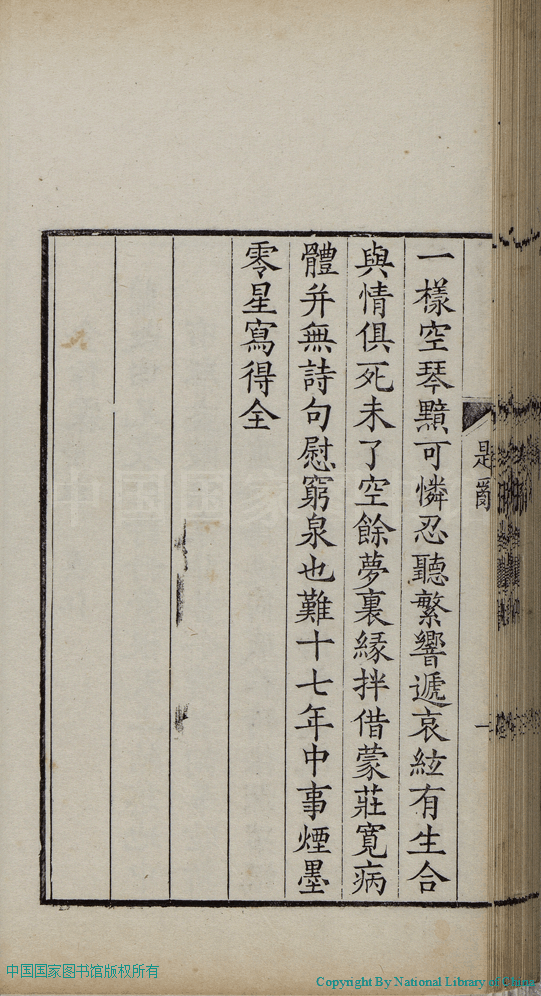 一樣空琴黯可憐忍聽繁響遞哀絃有生合
與情俱死未了空餘夢裏緣拌借蒙莊寬病
體并無詩句慰窮泉也難十七年中事煙墨
零星寫得全
一
中国国家图书馆版权所有
Copyright By National Library of China